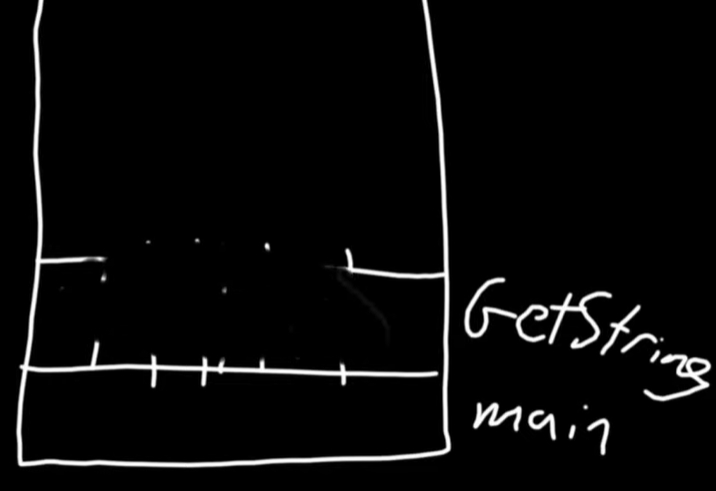 GetString
main